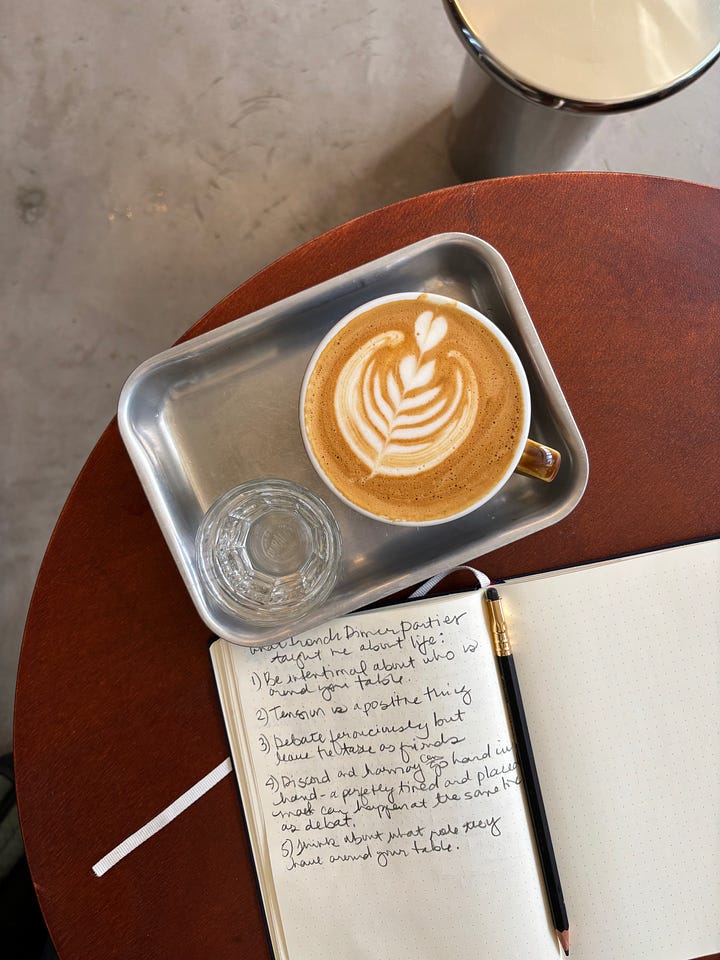 what French Dinner Parties
taught me about life:
1) Be intentional about who is
around your table.
2) Tension is a positive thing
3) Debate ferouciously but
leave the table as friends
4) Discord and harmony can go hand in
hand - a perfectly timed and placed
can happen at the same time
as debat.
5) Think about what role they
have around your table.